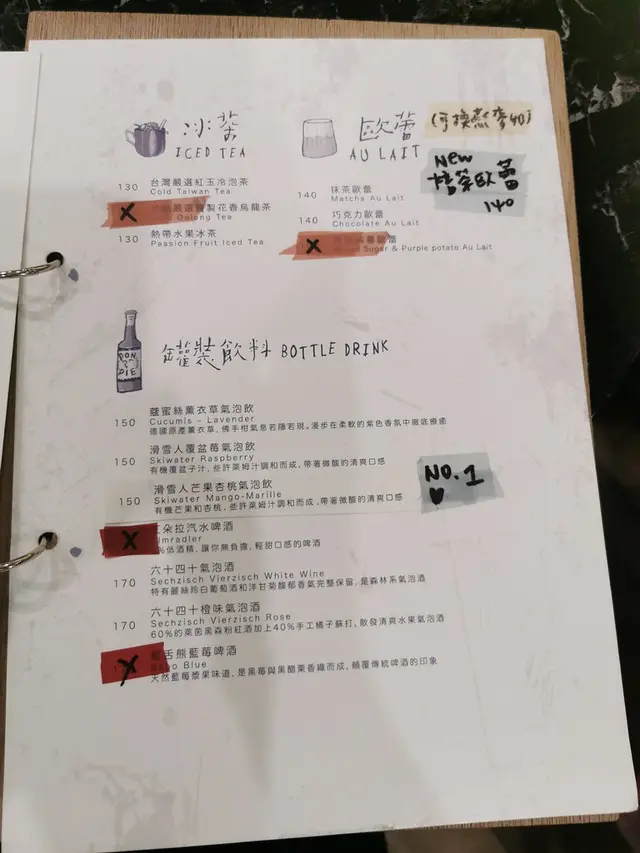 冰茶
ICED TEA
130 台灣嚴選紅玉冷泡茶
Cold Taiwan Tea
X 嚴選 製花香烏龍茶
Oolong Tea
130 熱帶水果冰茶
Passion Fruit Iced Tea
歐蕾
AU LAIT
(可換燕麥40)
New
焙茶歐蕾
140
140 抹茶歐蕾
Matcha Au Lait
140 巧克力歐蕾
Chocolate Au Lait
X 歐蕾
Sugar & Purple potato Au Lait
DON
DIE
罐裝飲料 BOTTLE DRINK
150 蔻蜜絲薰衣草氣泡飲
Cucumis – Lavender
德國原產薰衣草，佛手柑氣息若隱若現。漫步在柔軟的紫色香氛中徹底療癒
150 滑雪人覆盆莓氣泡飲
Skiwater Raspberry
有機覆盆子汁，些許萊姆汁調和而成，帶著微酸的清爽口感
150 滑雪人芒果杏桃氣泡飲
Skiwater Mango-Marille
有機芒果和杏桃，些許萊姆汁調和而成，帶著微酸的清爽口感
NO.1
♥
X 朵拉汽水啤酒
mradler
%低酒精，讓你無負擔，輕甜口感的啤酒
170 六十四十氣泡酒
Sechzisch Vierzisch White Wine
特有麗絲玲白葡萄酒和洋甘菊馥郁香氣完整保留，是森林系氣泡酒
170 六十四十橙味氣泡酒
Sechzisch Vierzisch Rose
60%的萊茵黑森粉紅酒加上40%手工橘子蘇打，散發清爽水果氣泡酒
X 舌熊藍莓啤酒
Blue
天然藍莓漿果味道，是黑莓與黑醋栗香織而成，顛覆傳統啤酒的印象